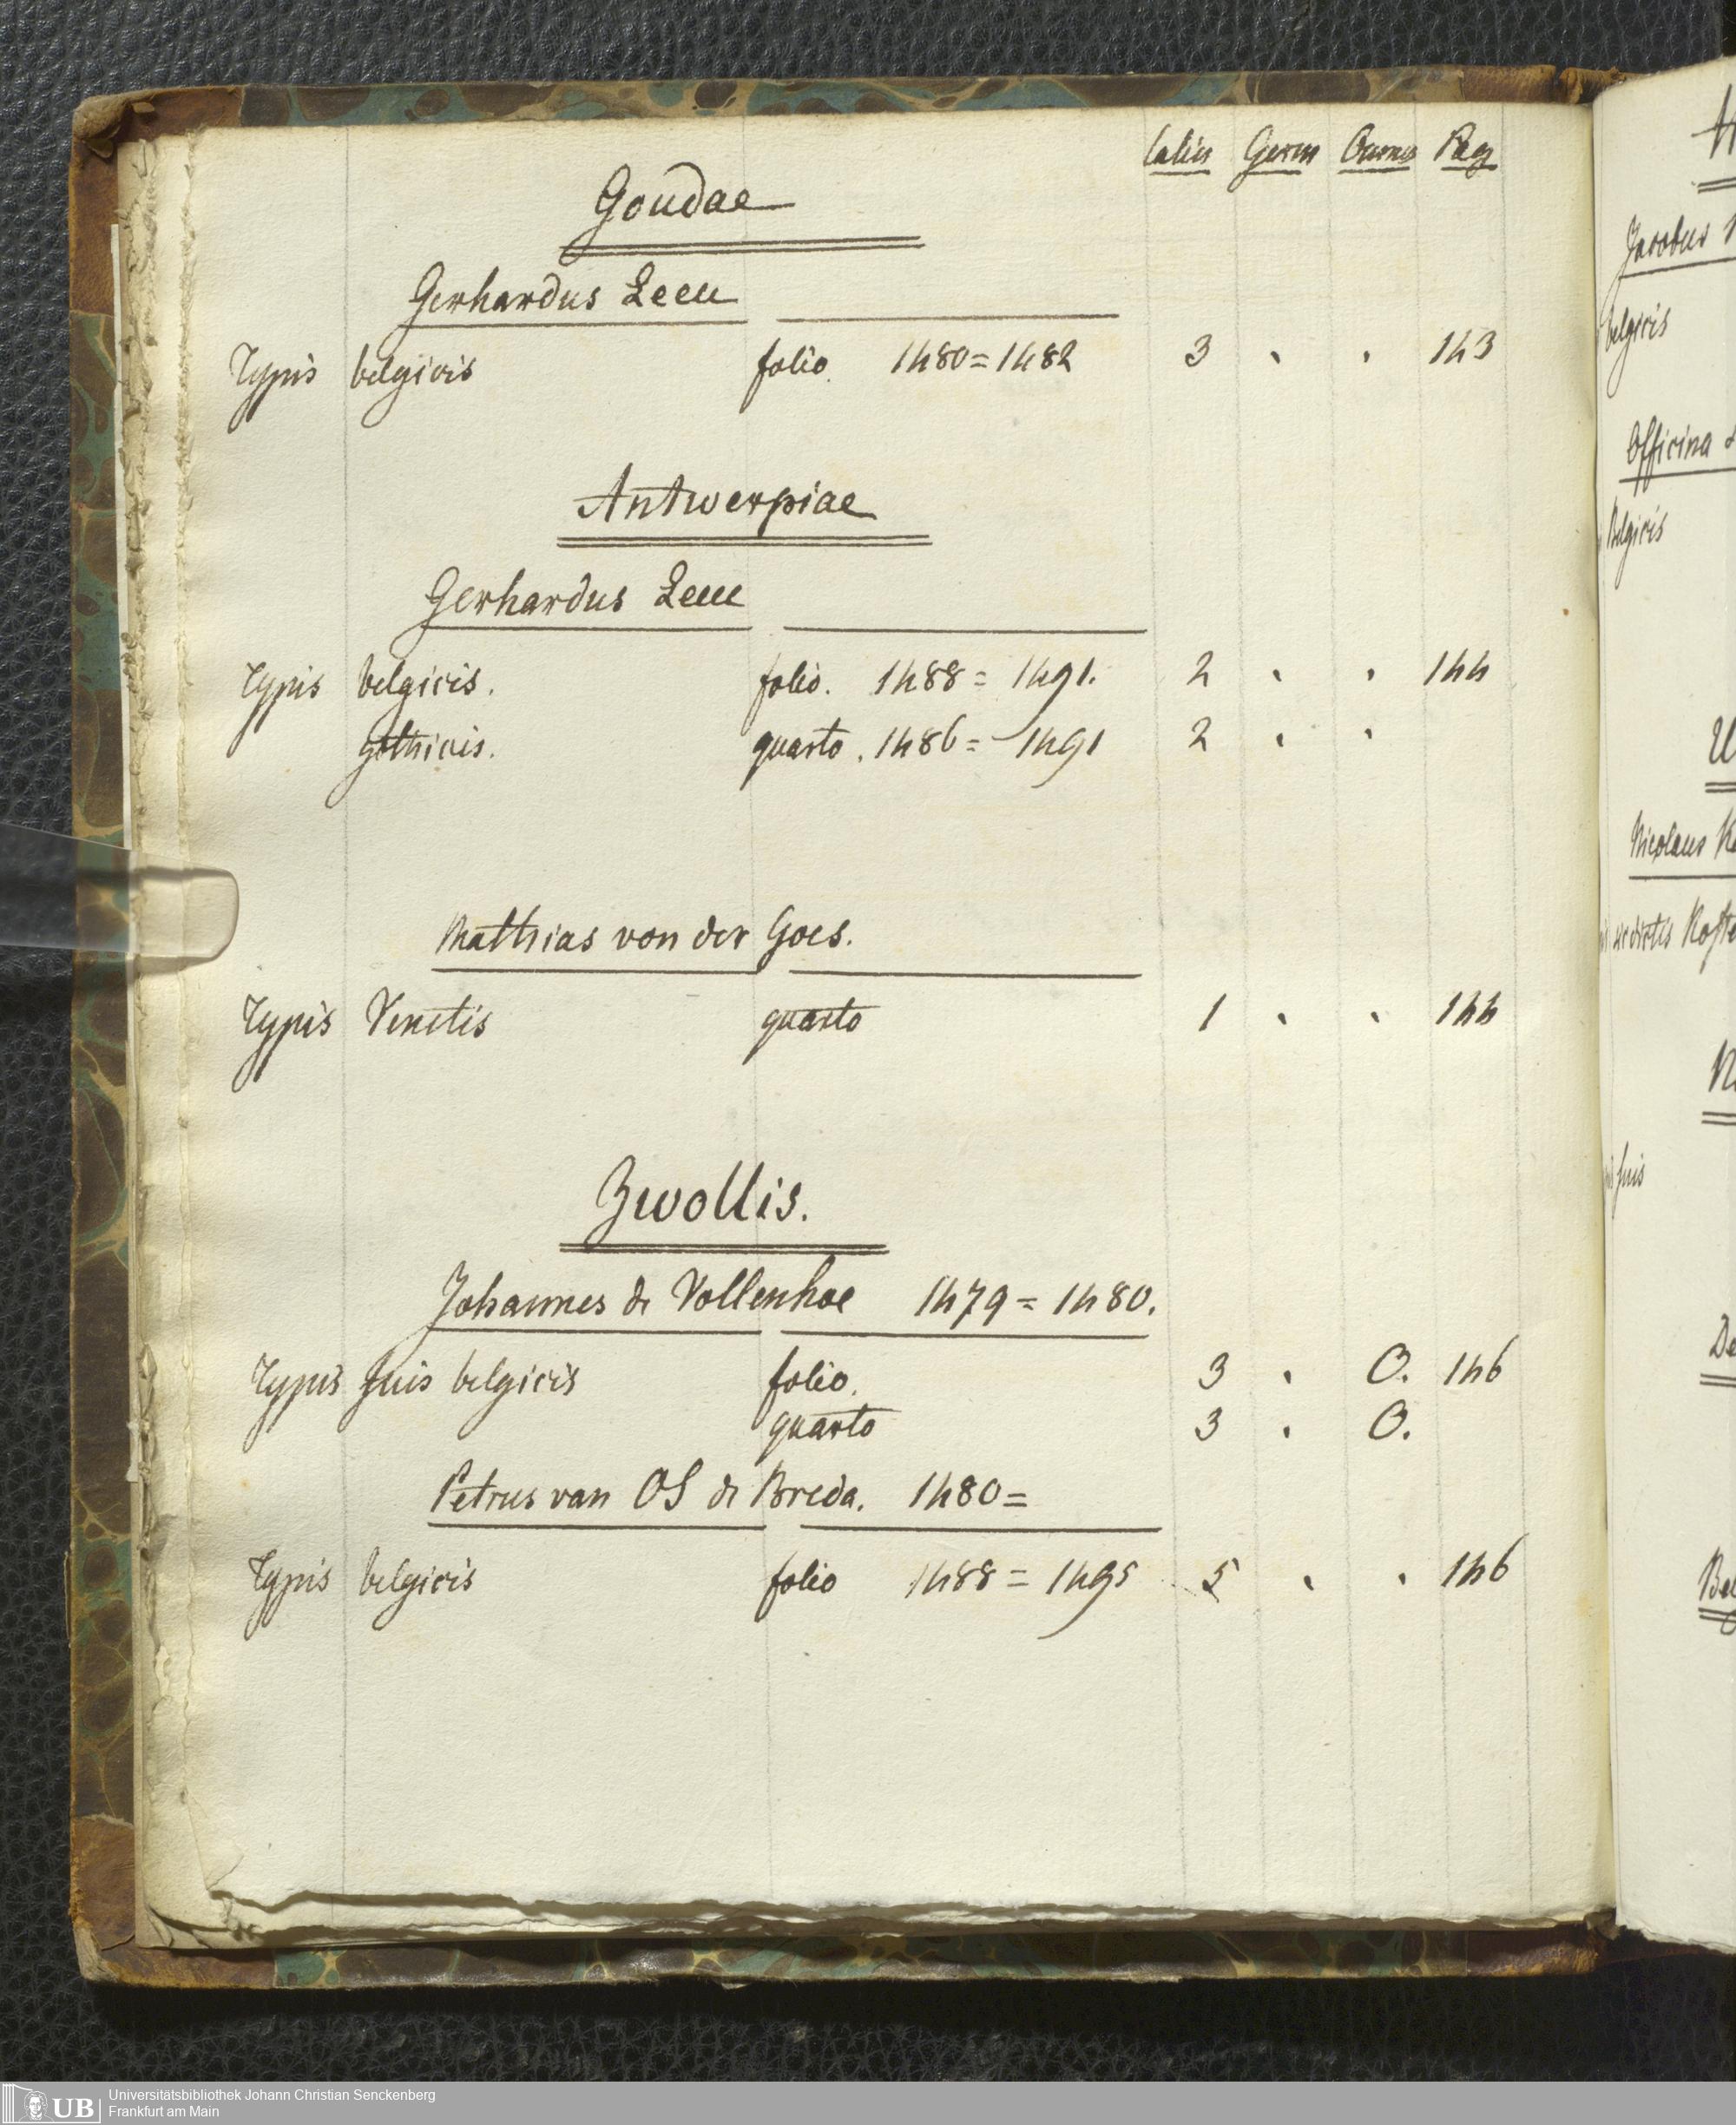 Latin Germ Pag
Goudae
Gerhardus Leeu
Typis belgicis folio. 1480=1482 3 . . 143
Antwerpiae
Gerhardus Leeu
Typis belgicis. folio. 1488= 1491. 2 . . 144
gothicis. quarto. 1486= 1491 2 . .
Matthias von der Goes.
Typis Venetis quarto 1 . . 144
Zwollis.
Johannes de Vollenhoe 1479=1480.
Typis suis belgicis folio. 3 . O. 146
quarto 3 . O.
Petrus van OS de Breda. 1480=
Typis belgicis folio 1488=1495 5 . . 146
Jacobus
belgicis
Officina
Belgicis
Nicolaus
suis
UB Universitätsbibliothek Johann Christian Senckenberg
Frankfurt am Main